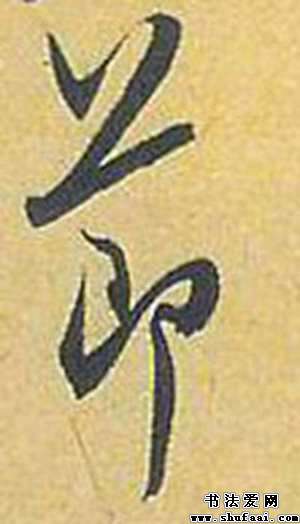 節
书法爱网
www.shufaai.com